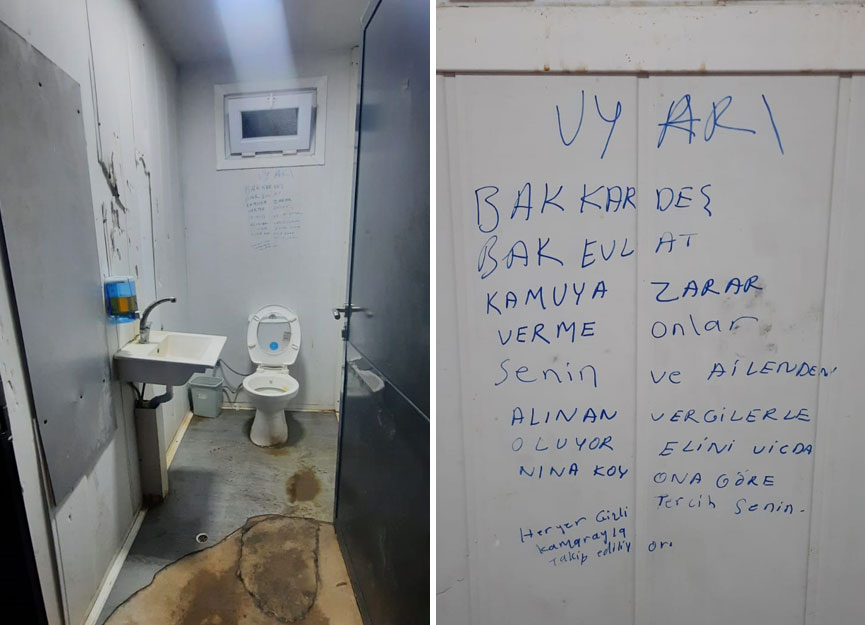 UYARI
BAK KARDEŞ
BAK EVLAT
KAMUYA ZARAR
VERME onlar
senin ve AİLENDEN
ALINAN VERGİLERLE
OLUYOR ELİNİ VİCDA
NINA KOY ONA GÖRE
Tercih senin.
Heryer Gizli
kamarayla
Takip ediliyor.